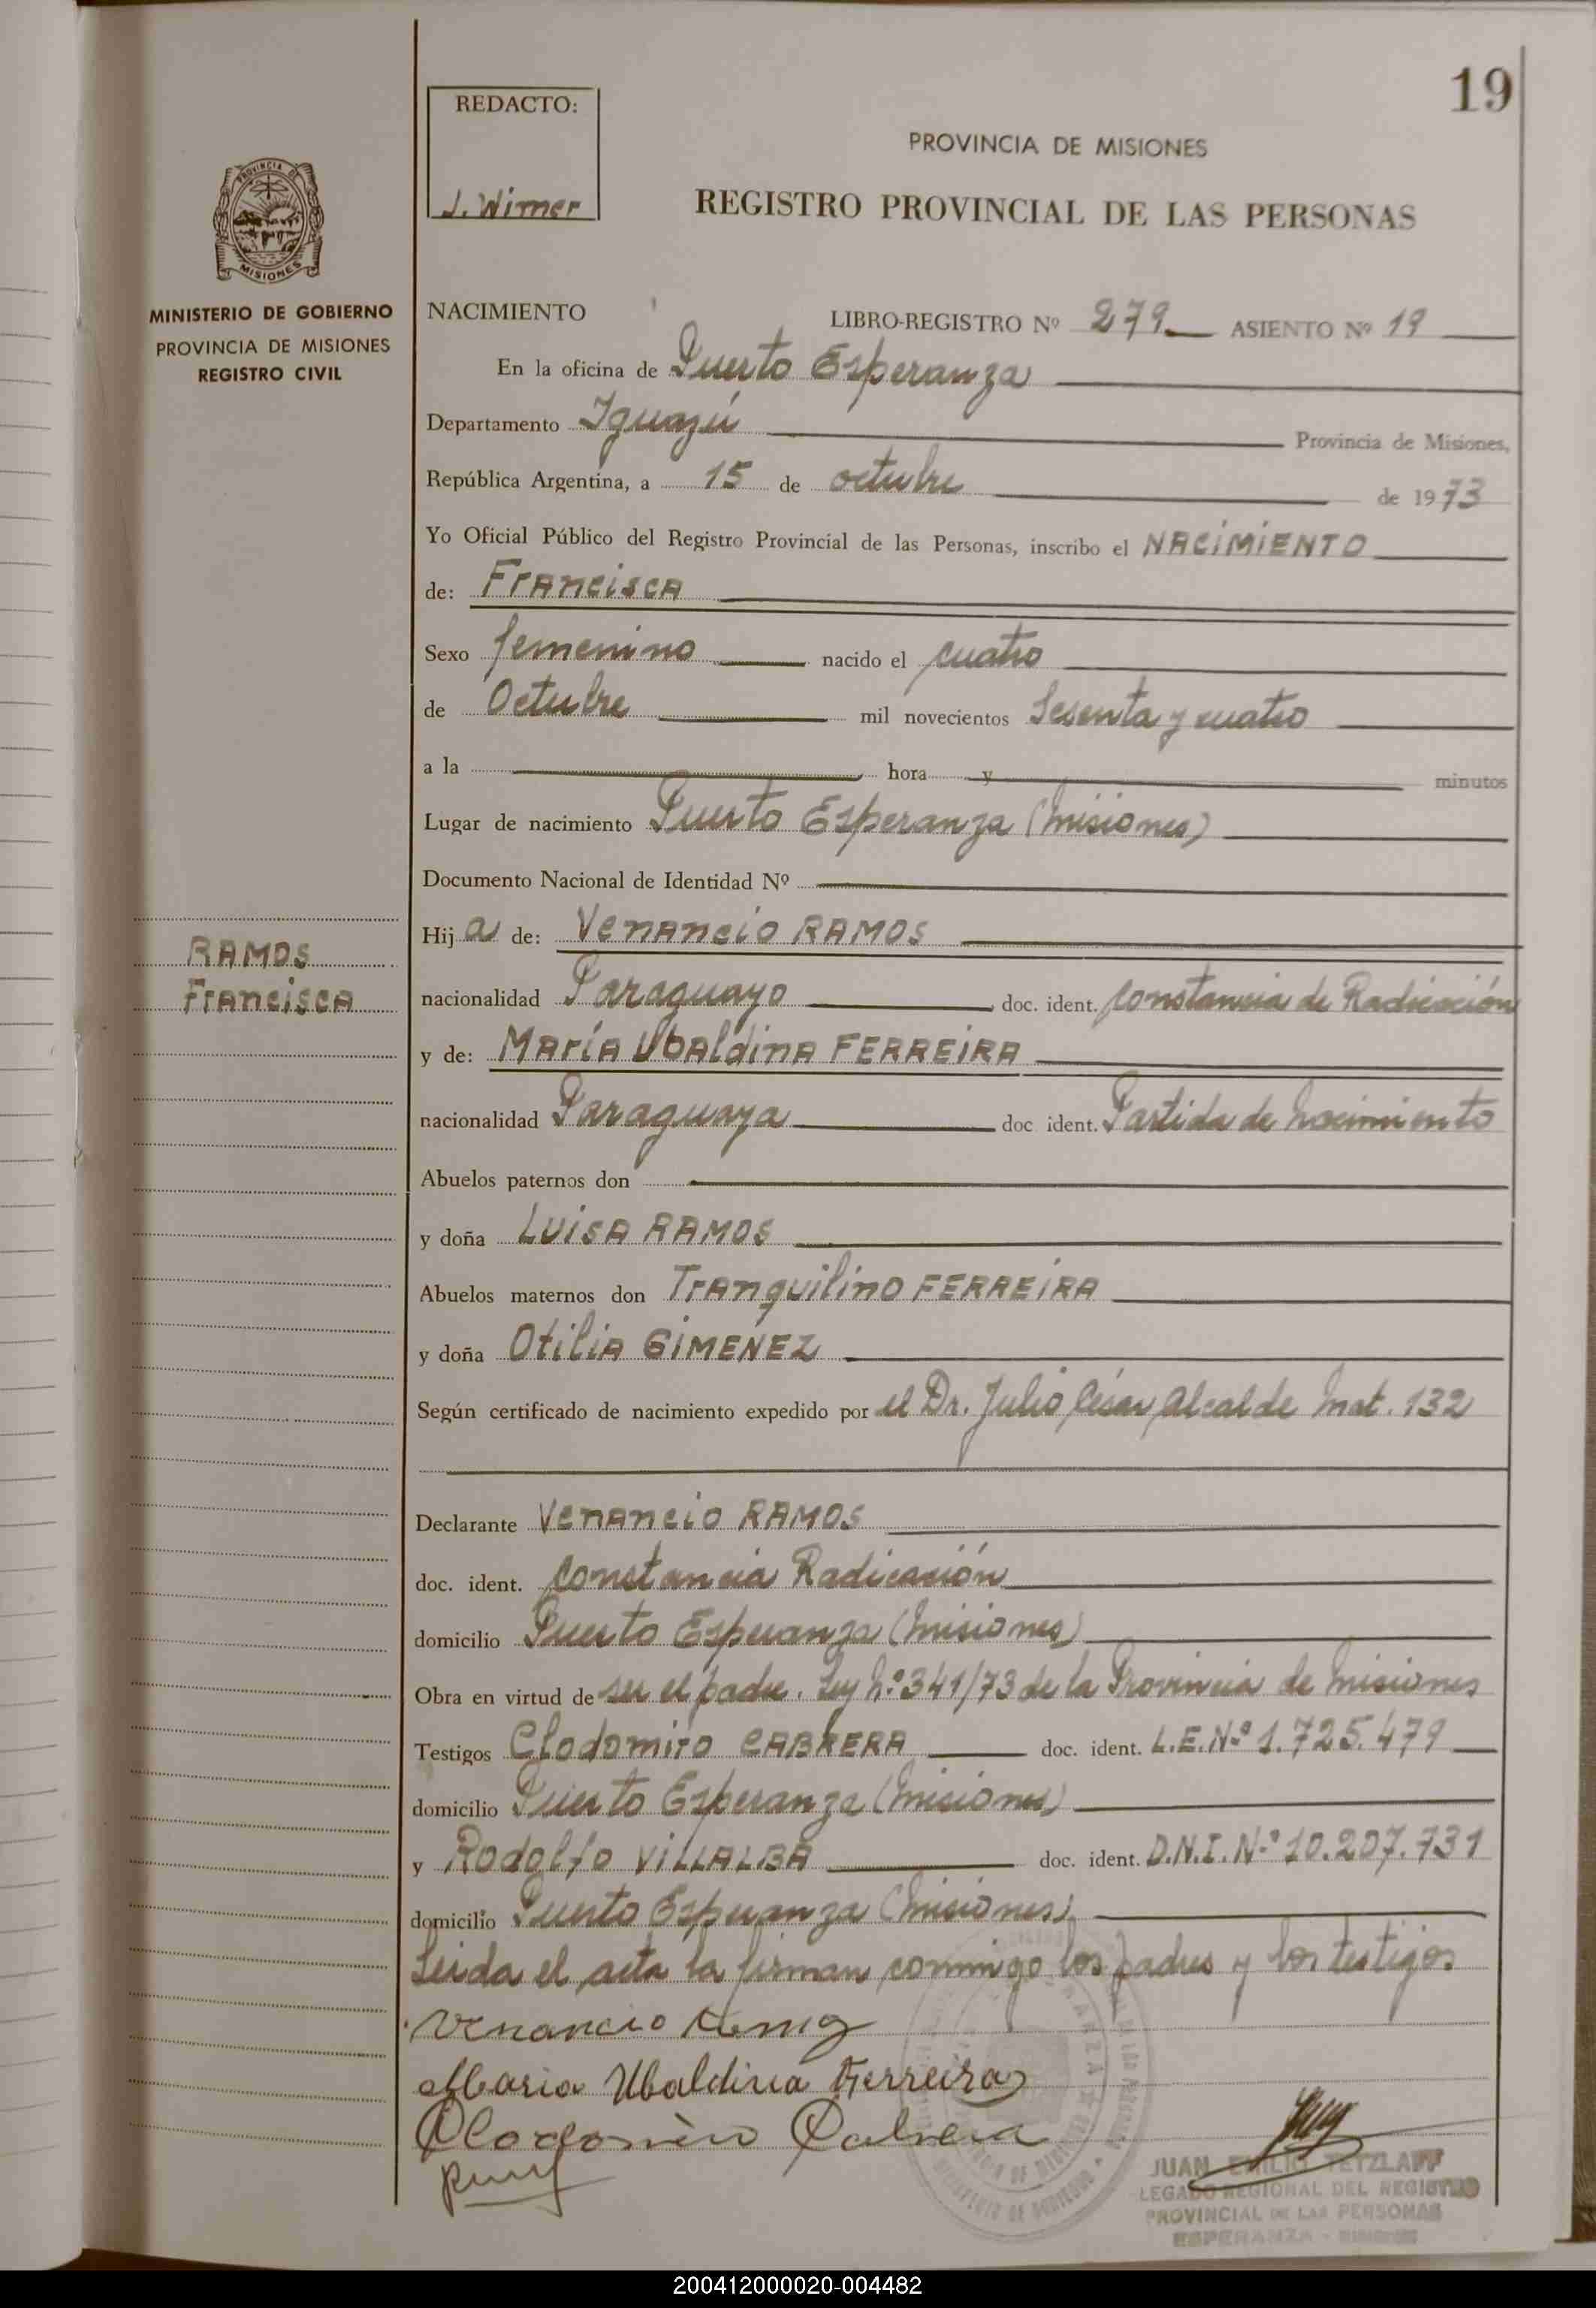 19
REDACTO:
J. Wirner
PROVINCIA DE MISIONES
REGISTRO PROVINCIAL DE LAS PERSONAS
PROVINCIA DE
MISIONES
MINISTERIO DE GOBIERNO
PROVINCIA DE MISIONES
REGISTRO CIVIL
NACIMIENTO LIBRO-REGISTRO Nº 279 ASIENTO Nº 19
En la oficina de Puerto Esperanza
Departamento Iguazú Provincia de Misiones,
República Argentina, a 15 de octubre de 1973
Yo Oficial Público del Registro Provincial de las Personas, inscribo el NACIMIENTO
de: Francisca
Sexo femenino nacido el cuatro
de Octubre mil novecientos Sesenta y cuatro
a la hora y minutos
Lugar de nacimiento Puerto Esperanza (Misiones)
Documento Nacional de Identidad Nº
Hija de: Venancio RAMOS
RAMOS
Francisca
nacionalidad Paraguayo doc. ident. Constancia de Radicación
y de: María Ubaldina FERREIRA
nacionalidad Paraguaya doc ident. Partida de Nacimiento
Abuelos paternos don
y doña LUISA RAMOS
Abuelos maternos don Tranquilino FERREIRA
y doña Otilia GIMENEZ
Según certificado de nacimiento expedido por el Dr. Julio César Alcalde Mat. 132
Declarante Venancio RAMOS
doc. ident. Constancia Radicación
domicilio Puerto Esperanza (Misiones)
Obra en virtud de ser el padre. Ley Nº 341/73 de la Provincia de Misiones
Testigos Clodomiro CABRERA doc. ident. L.E.Nº 1.725.479
domicilio Puerto Esperanza (Misiones)
y Rodolfo VILLALBA doc. ident. D.N.I. Nº 10.207.731
domicilio Puerto Esperanza (Misiones)
Leida el acta la firman conmigo los padres y los testigos
Venancio
Maria Ubaldina Ferreira
Clodomiro Cabrera
JUAN EMILIO TETZLAFF
LEGADO REGIONAL DEL REGISTRO
PROVINCIAL DE LAS PERSONAS
ESPERANZA - MISIONES
200412000020-004482